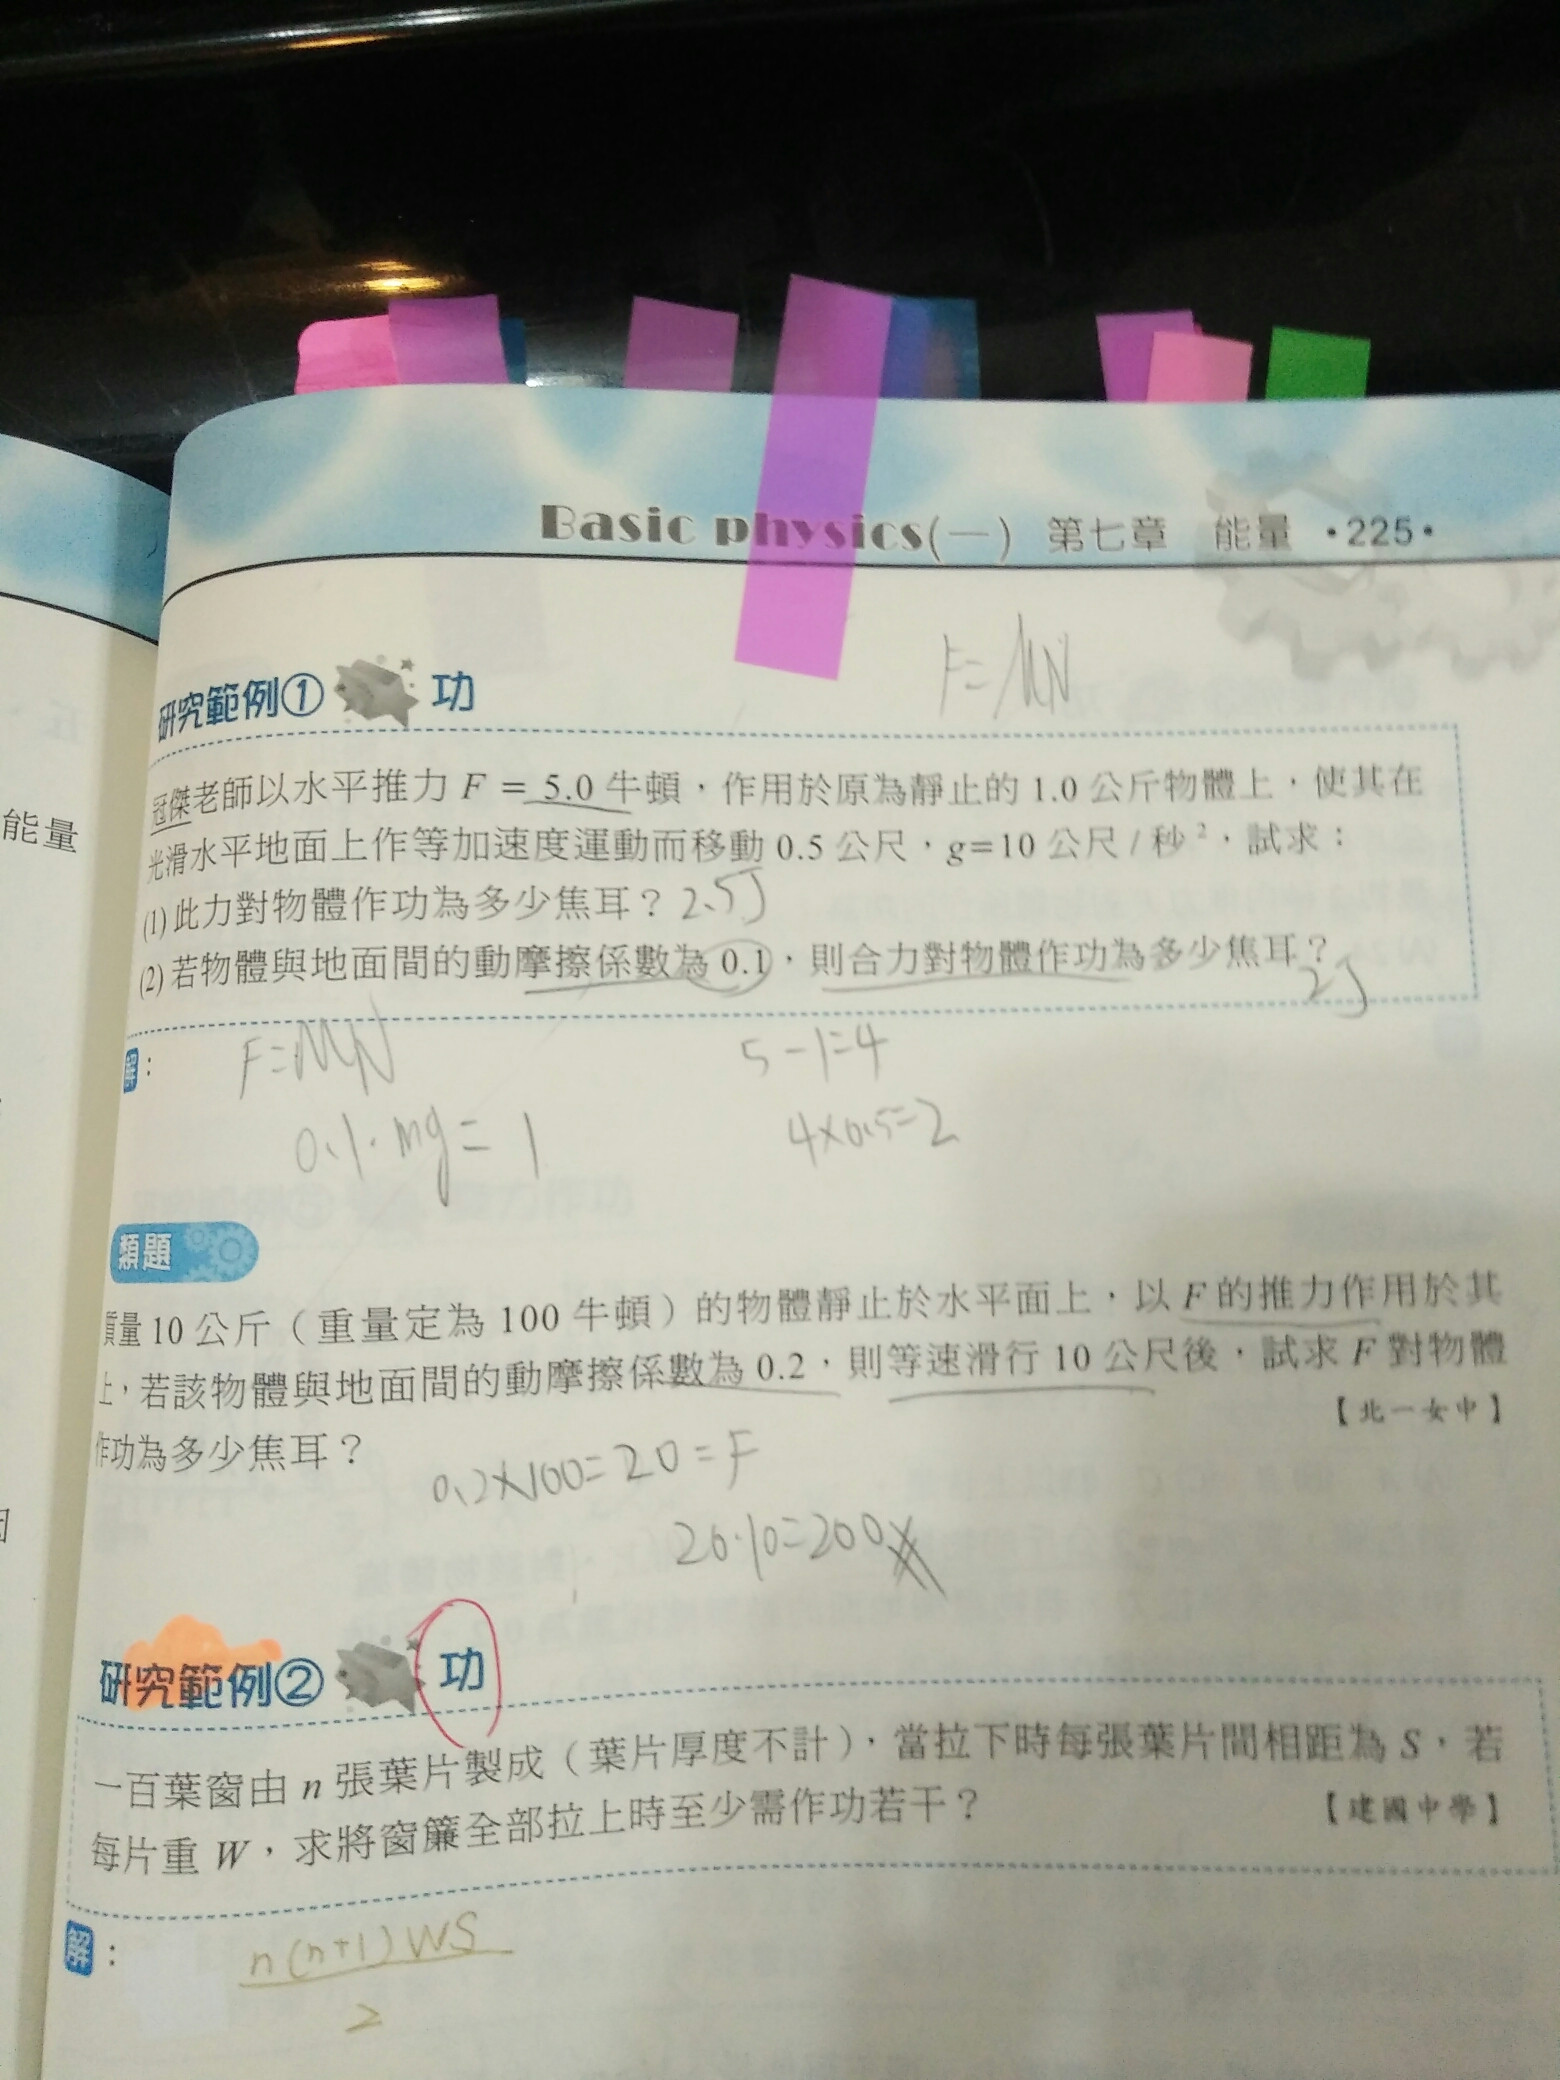 Basic physics(一) 第七章 能量 •225•
能量
F=MN
研究範例① 功
冠傑老師以水平推力 F = 5.0 牛頓，作用於原為靜止的 1.0 公斤物體上，使其在
光滑水平地面上作等加速度運動而移動 0.5 公尺，g=10 公尺/秒²，試求：
(1) 此力對物體作功為多少焦耳？ 2.5J
(2) 若物體與地面間的動摩擦係數為 0.1，則合力對物體作功為多少焦耳？
2J
解：
F=MN
5-1=4
0.1·mg=1
4×0.5=2
類題
質量 10 公斤（重量定為 100 牛頓）的物體靜止於水平面上，以 F 的推力作用於其
上，若該物體與地面間的動摩擦係數為 0.2，則等速滑行 10 公尺後，試求 F 對物體
作功為多少焦耳？
【北一女中】
0.2×100=20=F
20·10=200
研究範例② 功
一百葉窗由 n 張葉片製成（葉片厚度不計），當拉下時每張葉片間相距為 S，若
每片重 W，求將窗簾全部拉上時至少需作功若干？ 【建國中學】
解：
n(n+1)WS
2